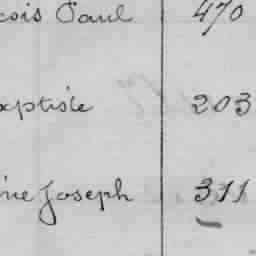 çois Paul 470
aptiste 203
ine Joseph 311